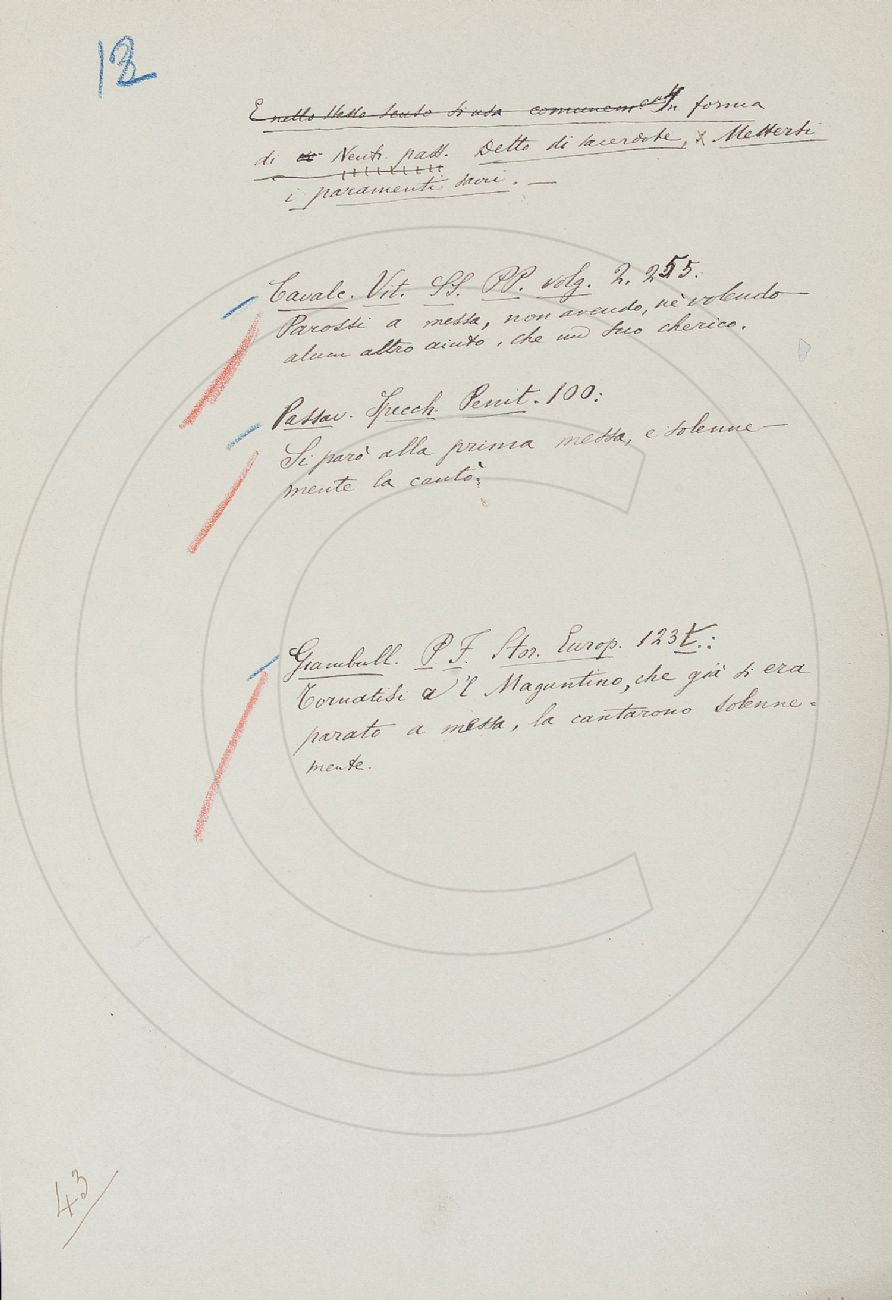 12
E nello stesso senso si usa comunem.e In forma
di Neut. pass. Detto di sacerdote, x Mettersi
i paramenti sacri. —
Cavalc. Vit. SS. PP. volg. 2. 255:
Parossi a messa, non avendo, nè volendo
alcun altro aiuto, che un suo cherico.
Passav. Specch. Penit. 100:
Si parò alla prima messa, e solenne-
mente la cantò.
Giambull. P. F. Stor. Europ. 123 t.:
Tornatisi a 'l Maguntino, che già si era
parato a messa, la cantarono solenne=
mente.
43